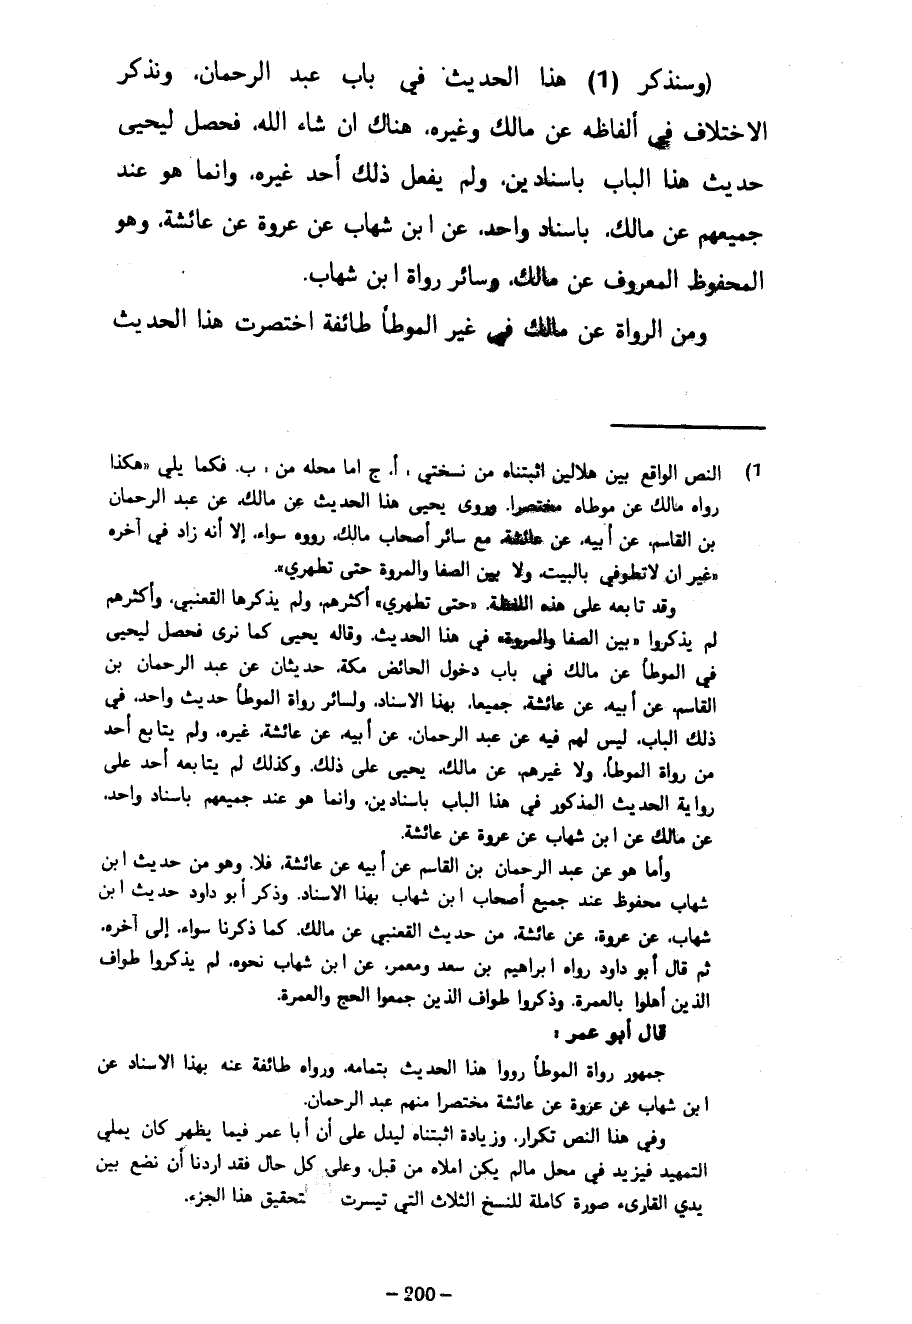 (وسنذكر (1) هذا الحديث في باب عبد الرحمان، ونذكر
الاختلاف في ألفاظه عن مالك وغيره، هناك ان شاء الله، فحصل ليحيى
حديث هذا الباب باسنادين، ولم يفعل ذلك أحد غيره، وانما هو عند
جميعهم عن مالك، باسناد واحد، عن ابن شهاب عن عروة عن عائشة، وهو
المحفوظ المعروف عن مالك، وسائر رواة ابن شهاب.
ومن الرواة عن مالك في غير الموطأ طائفة اختصرت هذا الحديث
1) النص الواقع بين هلالين اثبتناه من نسختي ، أ. ج اما محله من ، ب. فكما يلي «هكذا
رواه مالك عن موطاه مختصرا. وروى يحيى هذا الحديث عن مالك، عن عبد الرحمان
بن القاسم، عن أبيه، عن عائشة، مع سائر أصحاب مالك، رووه سواء، إلا أنه زاد في آخره
«غير ان لاتطوفي بالبيت، ولا بين الصفا والمروة حتى تطهري».
وقد تابعه على هذه اللفظة، «حتى تطهري» أكثرهم، ولم يذكرها القعنبي، وأكثرهم
لم يذكروا «بين الصفا والمروة» في هذا الحديث، وقاله يحيى كما نرى فحصل ليحيى
في الموطأ عن مالك في باب دخول الحائض مكة، حديثان عن عبد الرحمان بن
القاسم، عن أبيه، عن عائشة، جميعا، بهذا الاسناد، ولسائر رواة الموطأ حديث واحد، في
ذلك الباب، ليس لهم فيه عن عبد الرحمان، عن أبيه، عن عائشة، غيره، ولم يتابع أحد
من رواة الموطأ، ولا غيرهم، عن مالك، يحيى على ذلك، وكذلك لم يتابعه أحد على
رواية الحديث المذكور في هذا الباب باسنادين، وانما هو عند جميعهم باسناد واحد،
عن مالك عن ابن شهاب عن عروة عن عائشة.
وأما هو عن عبد الرحمان بن القاسم عن أبيه عن عائشة، فلا، وهو من حديث ابن
شهاب محفوظ عند جميع أصحاب ابن شهاب بهذا الاسناد، وذكر أبو داود حديث ابن
شهاب، عن عروة، عن عائشة، من حديث القعنبي عن مالك، كما ذكرنا سواء، إلى آخره،
ثم قال أبو داود رواه ابراهيم بن سعد ومعمر، عن ابن شهاب نحوه، لم يذكروا طواف
الذين أهلوا بالعمرة، وذكروا طواف الذين جمعوا الحج والعمرة.
قال أبو عمر :
جمهور رواة الموطأ رووا هذا الحديث بتمامه، ورواه طائفة عنه بهذا الاسناد عن
ابن شهاب عن عروة عن عائشة مختصرا منهم عبد الرحمان.
وفي هذا النص تكرار، وزيادة اثبتناه ليدل على أن أبا عمر فيما يظهر كان يملي
التمهيد فيزيد في محل مالم يكن املاه من قبل، وعلى كل حال فقد اردنا أن نضع بين
يدي القارىء صورة كاملة للنسخ الثلاث التي تيسرت لتحقيق هذا الجزء.
– 200 –